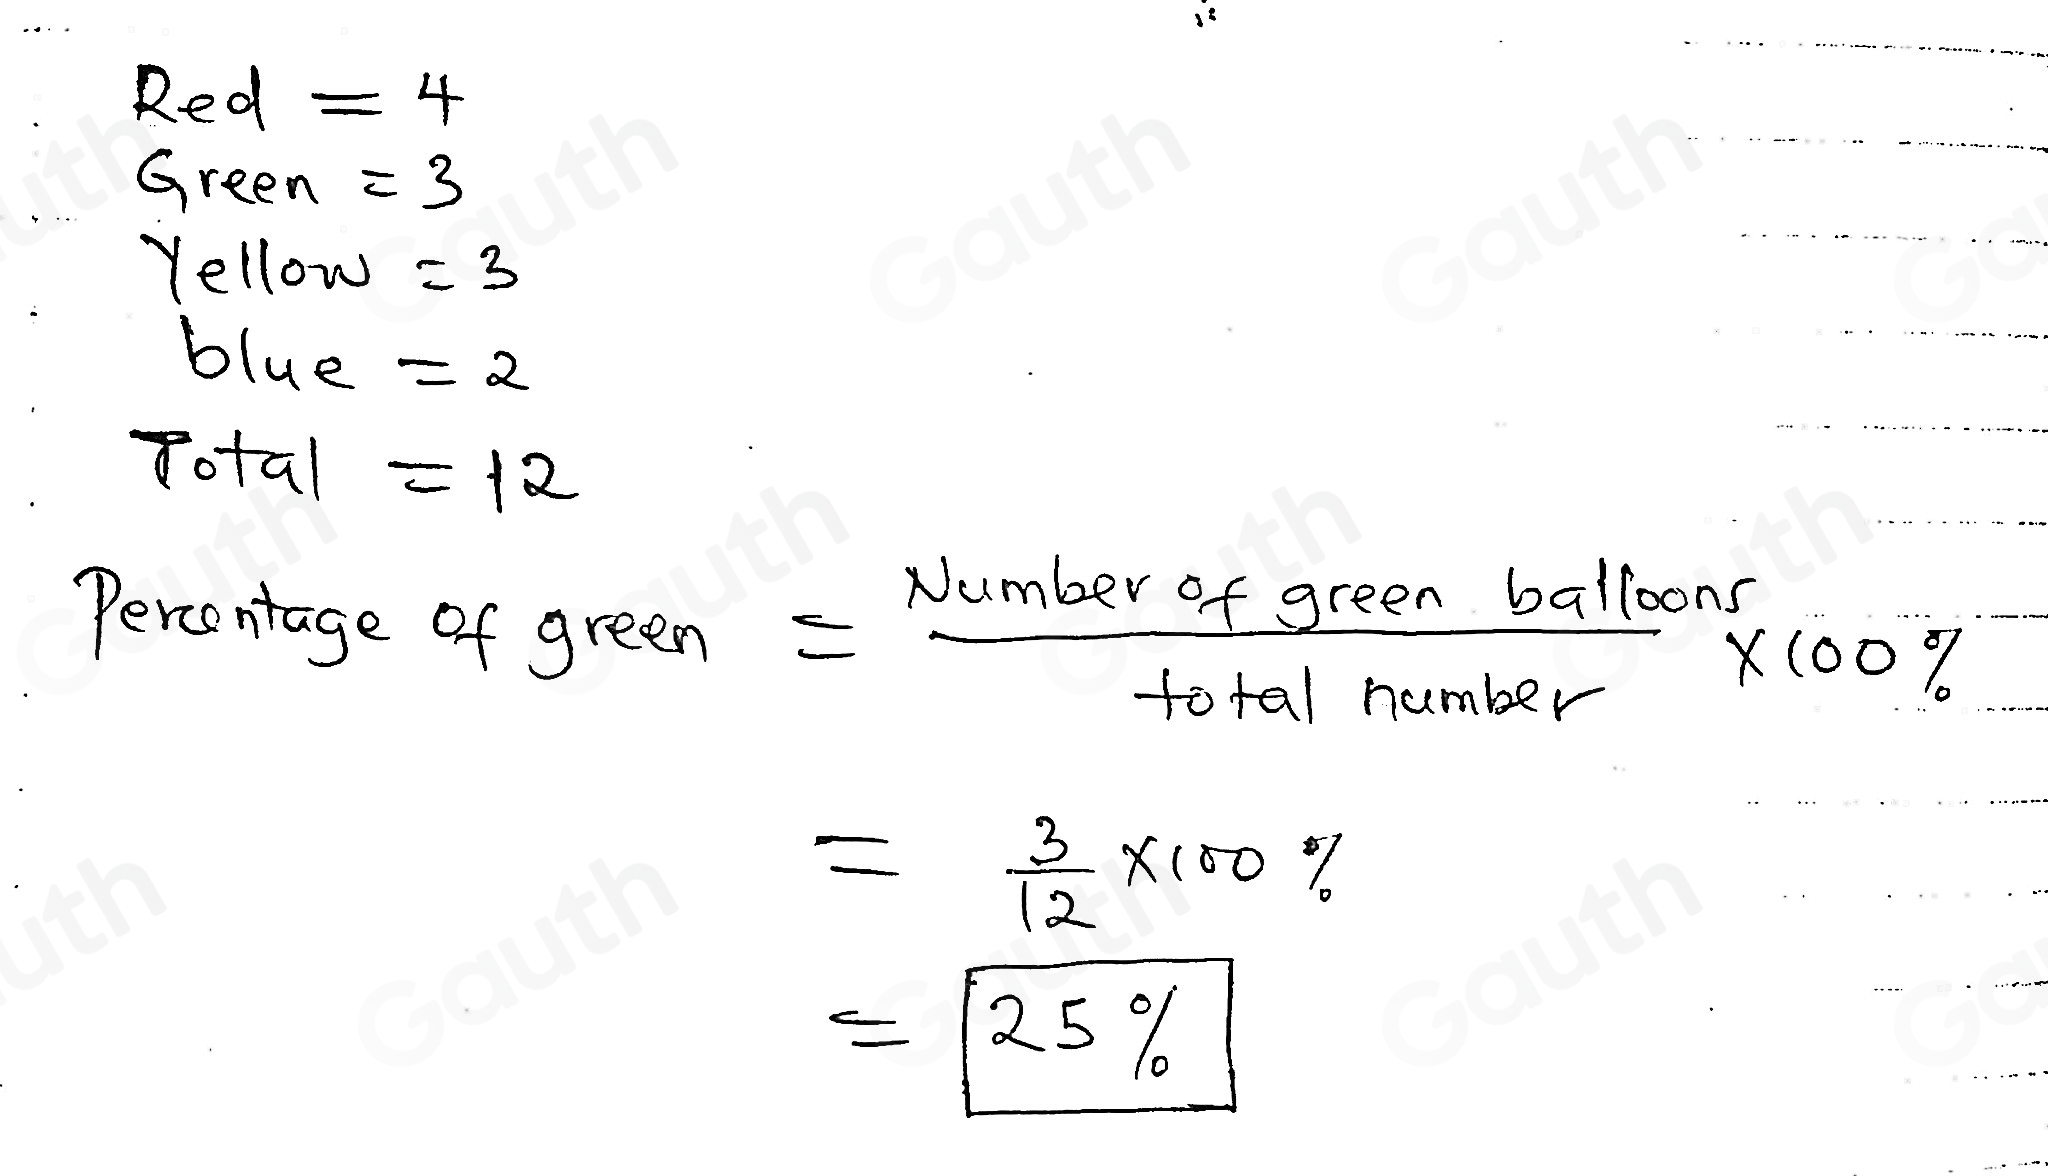 Red = 4
Green = 3
Yellow = 3
blue = 2
Total = 12
Percentage of green = Number of green balloons / total number × 100 %
= 3/12 × 100 %
= 25 %
Gauth